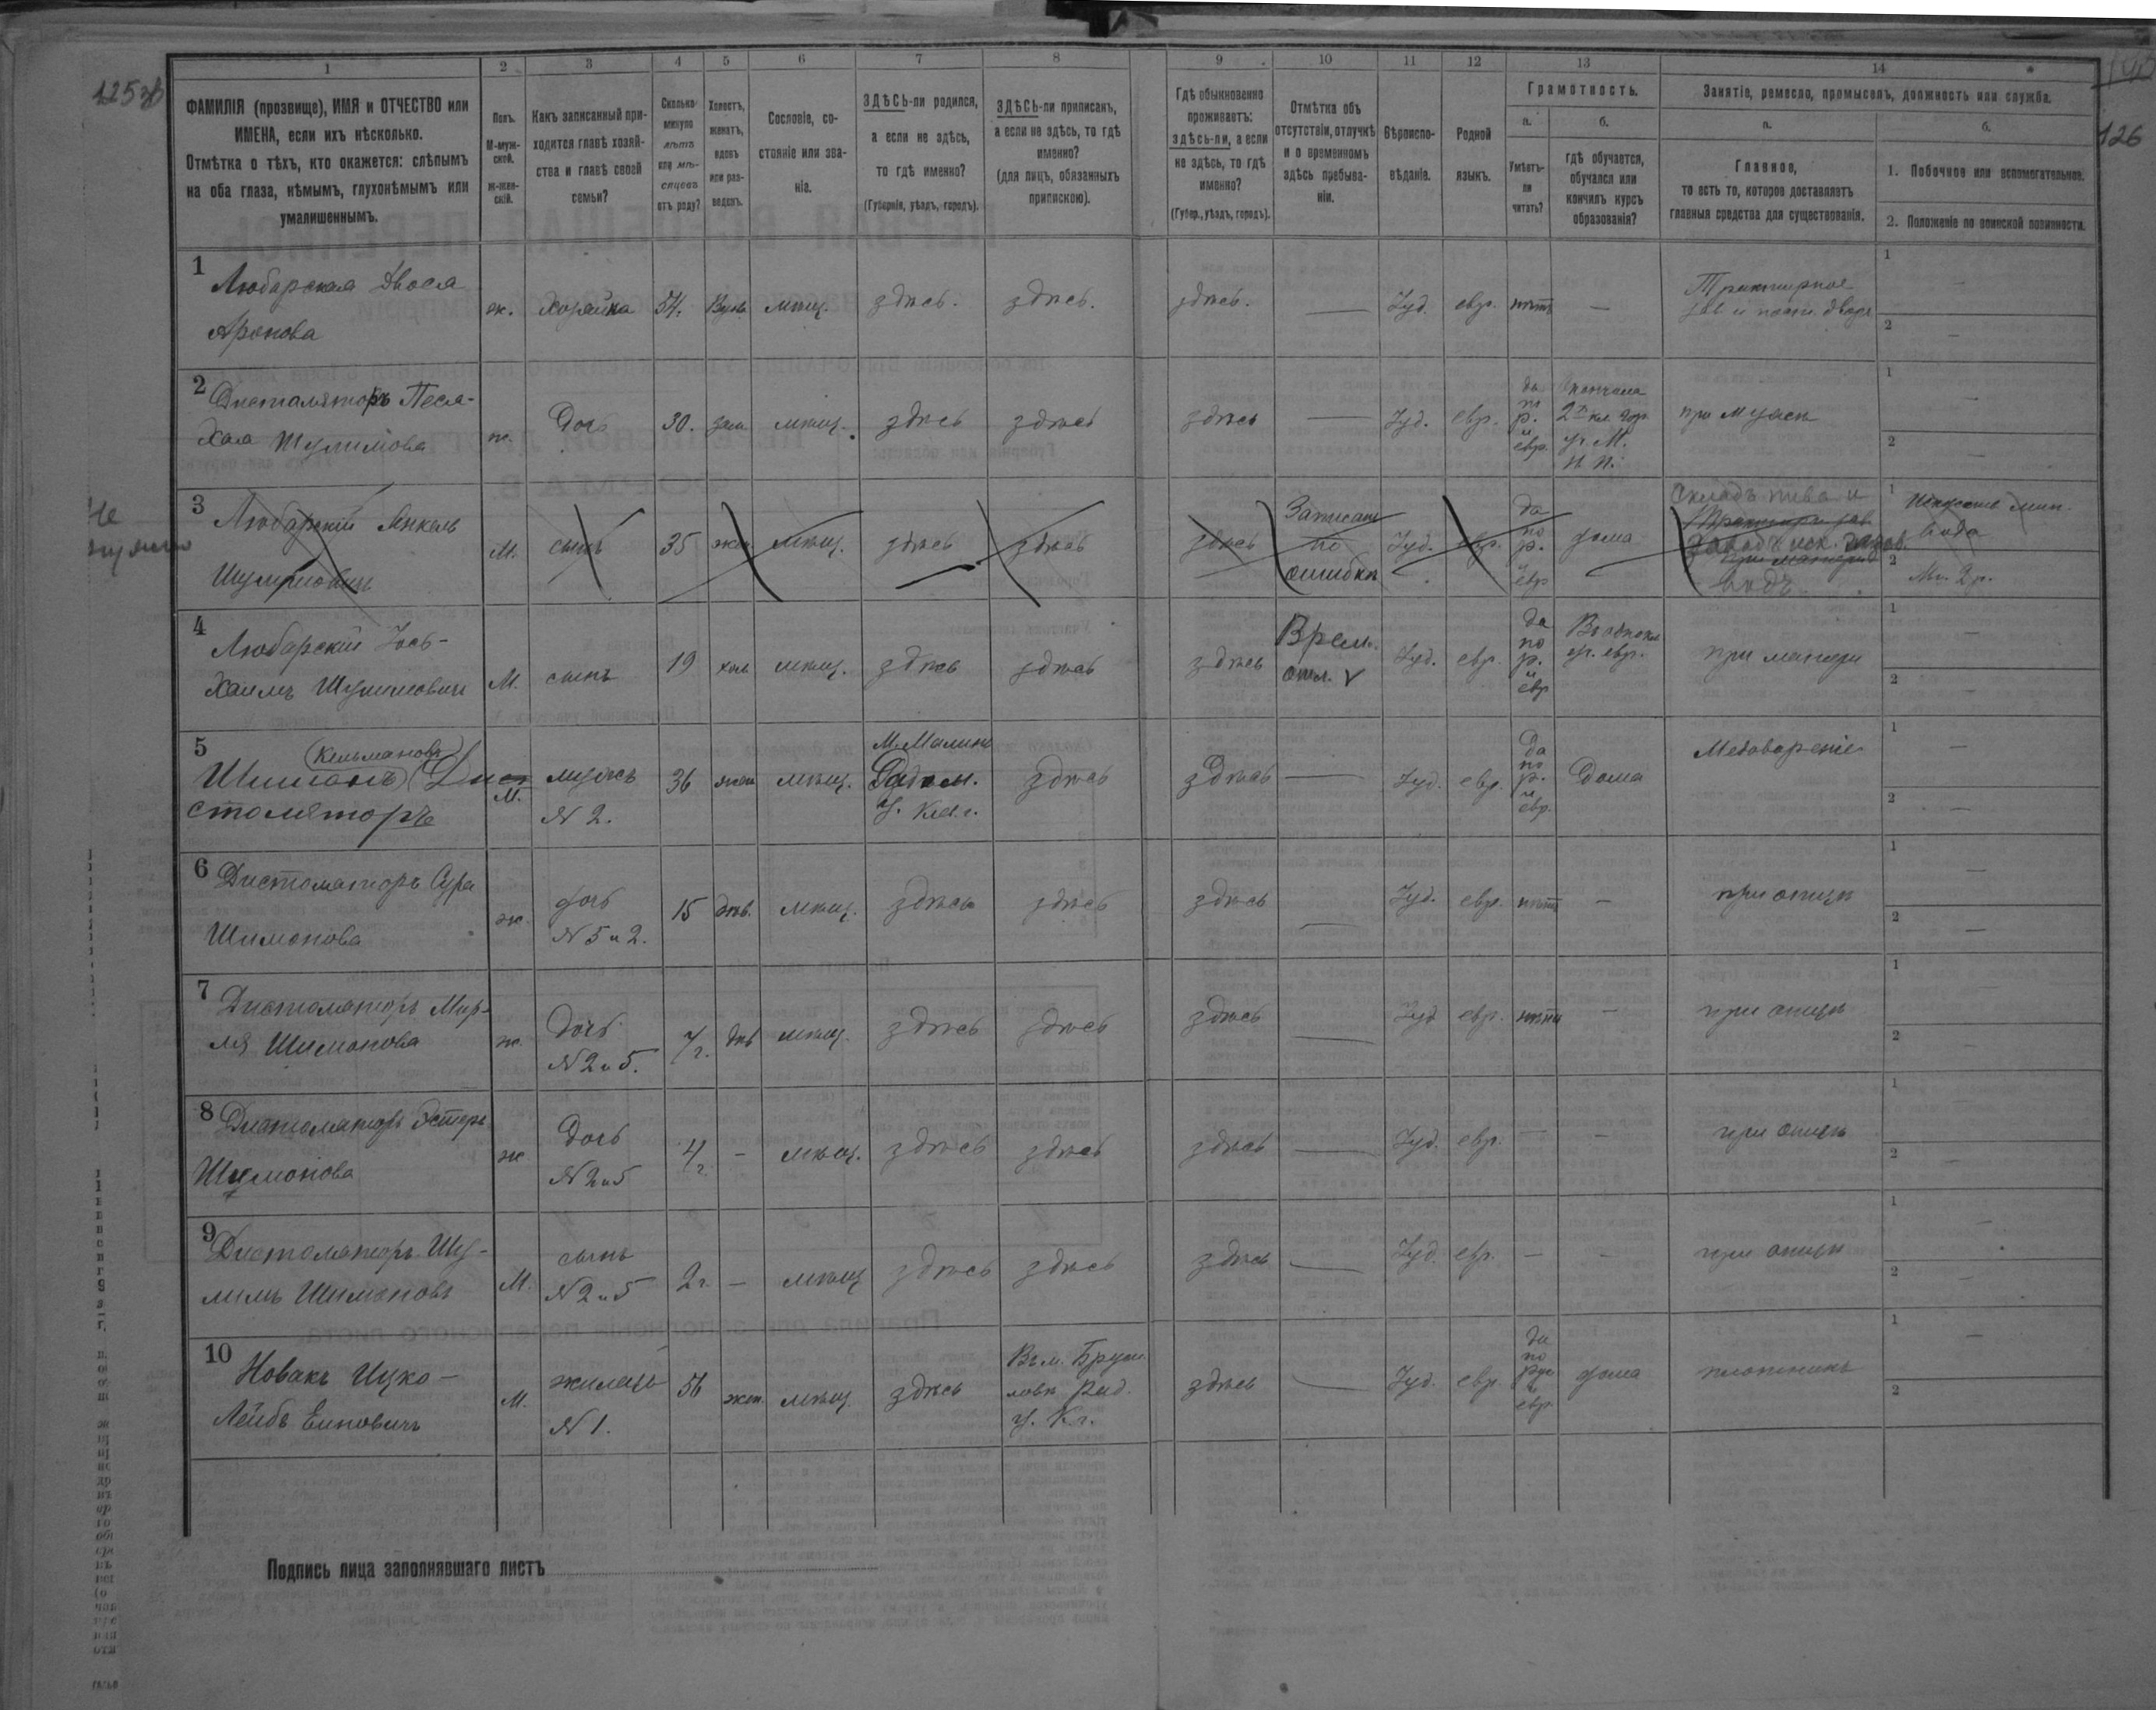 125 об
126
1 2 3 4 5 6 7 8 9 10 11 12 13 14
ФАМИЛІЯ (прозвище), ИМЯ и ОТЧЕСТВО или
ИМЕНА, если ихъ нѣсколько.
Отмѣтка о тѣхъ, кто окажется: слѣпымъ
на оба глаза, нѣмымъ, глухонѣмымъ или
умалишеннымъ.
Полъ.
М-муж-
ской.
Ж-жен-
скій.
Какъ записанный при-
ходится главѣ хозяй-
ства и главѣ своей
семьи?
Сколько
минуло
лѣтъ
или мѣ-
сяцевъ
отъ роду?
Холостъ,
женатъ,
вдовъ
или раз-
веденъ.
Сословіе, со-
стояніе или зва-
ніе.
ЗДѢСЬ-ли родился,
а если не здѣсь,
то гдѣ именно?
(Губернія, уѣздъ, городъ).
ЗДѢСЬ-ли приписанъ,
а если не здѣсь, то гдѣ
именно?
(для лицъ, обязанныхъ
припискою).
Гдѣ обыкновенно
проживаетъ:
здѣсь-ли, а если
не здѣсь, то гдѣ
именно?
(Губер., уѣздъ, городъ).
Отмѣтка объ
отсутствіи, отлучкѣ
и о временномъ
здѣсь пребыва-
ніи.
Вѣроиспо-
вѣданіе.
Родной
языкъ.
Грамотность.
а.
Умѣетъ-
ли
читать?
б.
гдѣ обучается,
обучался или
кончилъ курсъ
образованія?
Занятіе, ремесло, промыселъ, должность или служба.
а.
Главное,
то есть то, которое доставляетъ
главныя средства для существованія.
б.
1. Побочное или вспомогательное.
2. Положеніе по воинской повинности.
1
Любарская Двося
Аронова
ж. хозяйка 54. Вдова мѣщ. здѣсь. здѣсь. здѣсь. — Іуд. евр. нѣтъ —
Трактирное
зав и двора
1 —
2 —
2
Дистолято
Песя-
Хая Шулимова
ж. Дочь 30. зам. мѣщ. здѣсь здѣсь здѣсь — Іуд. евр.
да
по
р.
и
евр.
2 кл
при мужѣ
1 —
2 —
Не
3
Любарскій Янкель
Шулимовичъ
М. сынъ 35 жен мѣщ. здѣсь здѣсь здѣсь
Записанъ
по
ошибкѣ
Іуд. евр.
да
по
р.
и
евр
дома
Складъ пива и
водъ
1
вода
2
4
Любарскій Іось-
Хаимъ Шулимовичъ
М. сынъ 19 хол мѣщ. здѣсь здѣсь здѣсь
Врем.
отл. V
Іуд. евр.
да
по
р.
и
евр
евр.
при матери
1 —
2 —
5
(Кельманова)
Шимонъ (Ди-
столяторъ
М.
мужъ
№ 2.
36 жен мѣщ.
М. Малинъ
Радом.
У. Кіев. г.
здѣсь здѣсь — Іуд. евр.
Да
по
р.
и
евр.
Дома
Медовареніе
1 —
2 —
6
Дистоляторъ Сура
Шимонова
ж.
дочь
№ 5 и 2.
15 дѣв. мѣщ. здѣсь здѣсь здѣсь — Іуд. евр. нѣтъ — при отцѣ
1 —
2 —
7
Дистоляторъ Мир-
ля Шимонова
ж.
Дочь
№ 2 и 5.
7 г. дѣв мѣщ. здѣсь здѣсь здѣсь — Іуд евр. нѣтъ — при отцѣ
1
2 —
8
Дистоляторъ Эстеръ
Шимонова
ж
Дочь
№ 2 и 5
4 г. — мѣщ. здѣсь здѣсь здѣсь — Іуд. евр. — — при отцѣ
1
2 —
9
Дистоляторъ Шу-
лимъ Шимоновъ
М.
сынъ
№ 2 и 5
2 г. — мѣщ здѣсь здѣсь здѣсь — Іуд. евр. — — при отцѣ
1 —
2 —
10
Новакъ Ицко-
Лейбъ
М.
жилецъ
№ 1.
56 жен. мѣщ. здѣсь
Въ м. Бруси-
ловъ Рад.
у. К. г.
здѣсь — Іуд. евр
да
по
рус
и
евр.
дома плотникъ
1 —
2
Подпись лица заполнявшаго листъ